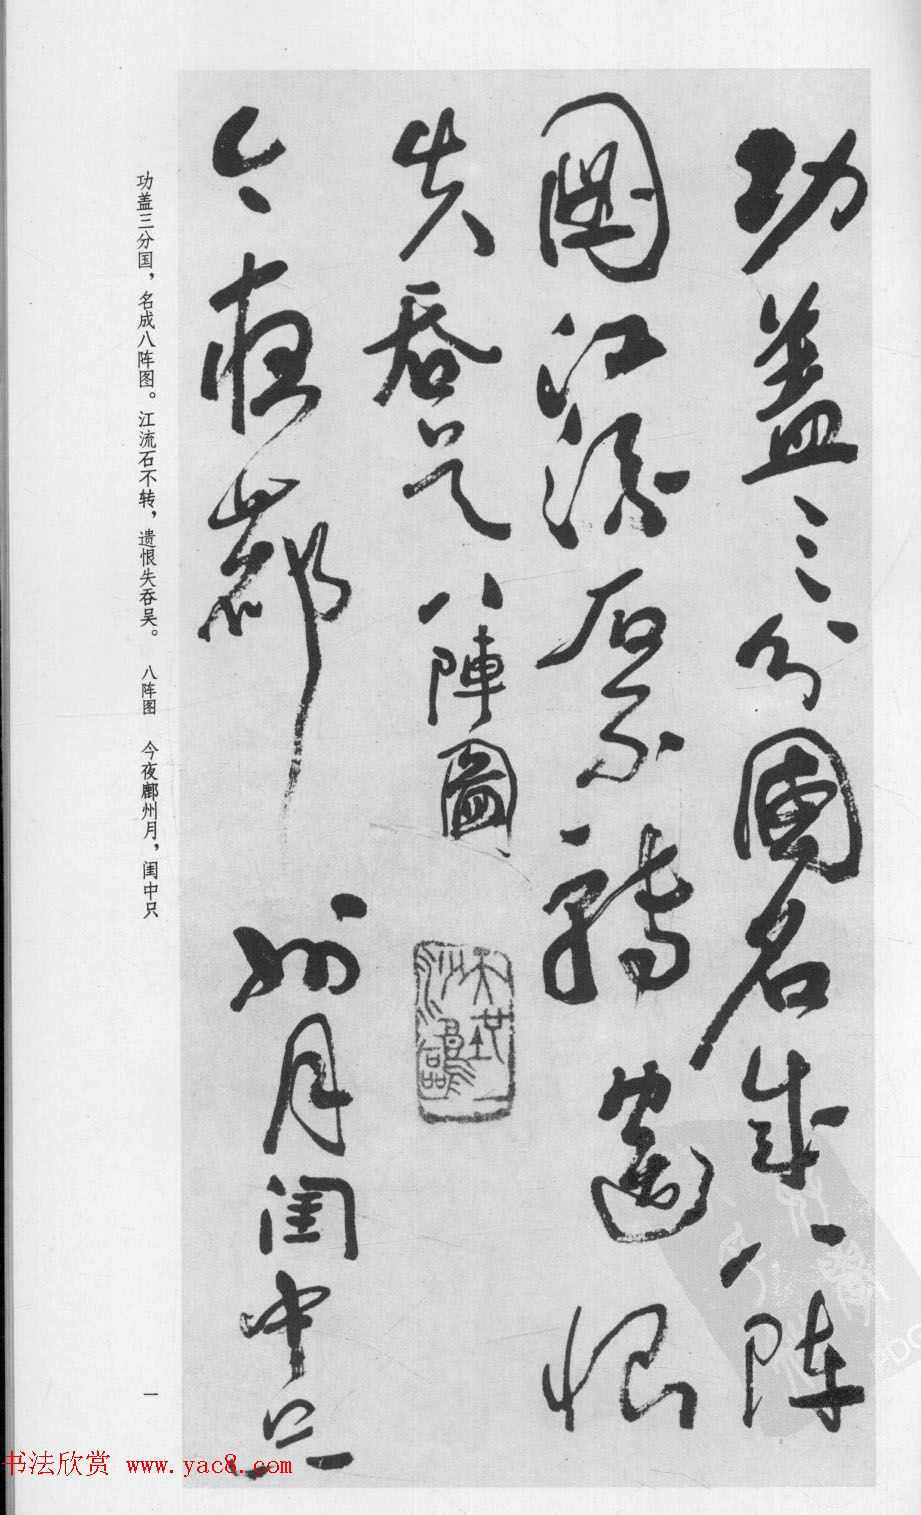 功蓋三分國名成八陣
圖江流石不轉遺恨
失吞吴
八陣圖
今夜鄜
州月閨中只
功盖三分国，名成八阵图。江流石不转，遗恨失吞吴。 八阵图 今夜鄜州月，闺中只
一
书法欣赏 www.yac8.com